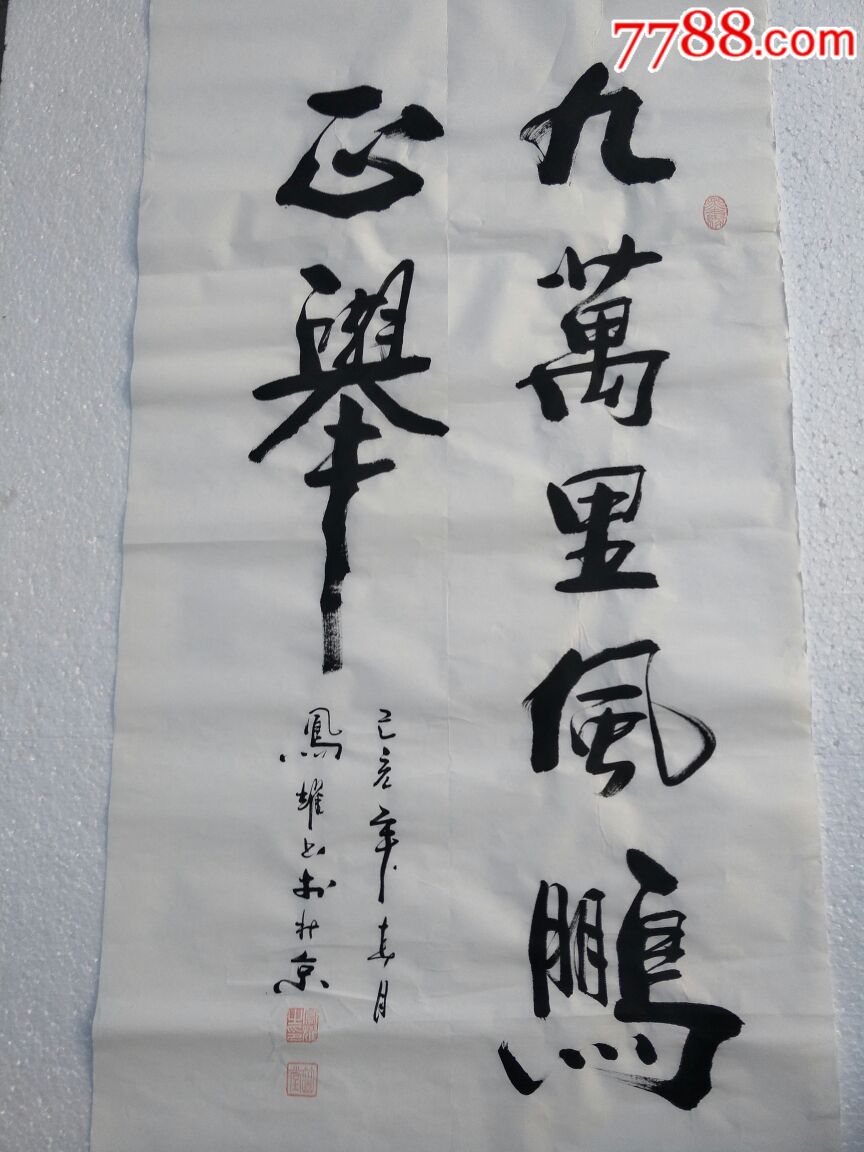 7788.com
九萬里風鵬
正舉
己亥年春月
鳳耀書於北京